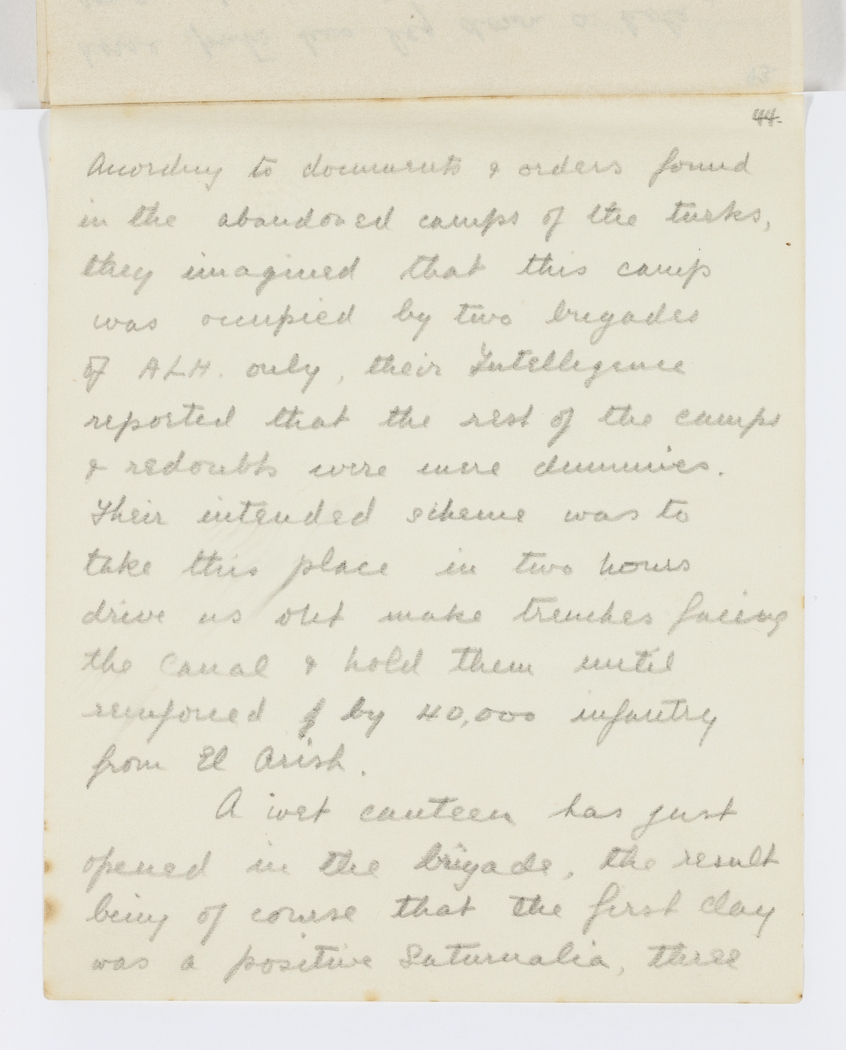 44.
According to documents & orders found
in the abandoned camps of the turks,
they imagined that this camp
was occupied by two brigades
of ALH. only, their Intelligence
reported that the rest of the camps
& redoubts were mere dummies.
Their intended scheme was to
take this place in two hours
drive us out make trenches facing
the Canal & hold them until
reinforced by 40,000 infantry
from El Arish.
A wet canteen has just
opened in the brigade, the result
being of course that the first day
was a positive Saturnalia, three